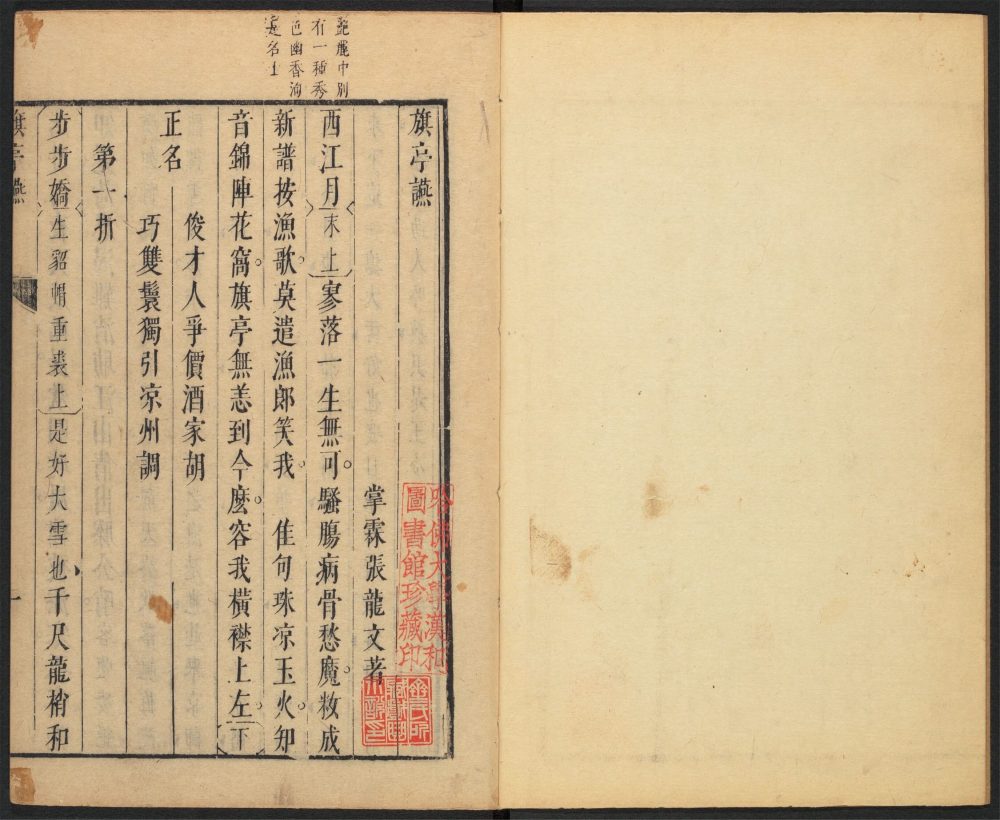 艶麗中別
有一種秀
色幽香洵
是名士
旗亭讌
掌霖張龍文著
西江月末上寥落一生無可騷腸病骨愁魔敉成
新譜按漁歌莫遣漁郎笑我 佳句珠凉玉火知
音錦陣花窩旗亭無恙到今麽容我橫襟上左下
正名
俊才人爭價酒家胡
巧雙鬟獨引凉州調
第一折
步步嬌生貂帽重裘上是好大雪也千尺龍梢和
旗亭讌
一
哈佛大學漢和
圖書館珍藏印